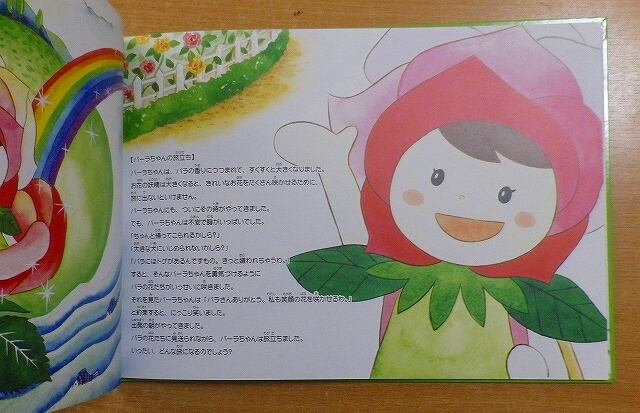 【バーラちゃんの旅立ち】
バーラちゃんは、バラの香りにつつまれて、すくすくと大きくなりました。
お花の妖精は大きくなると、きれいなお花をたくさん咲かせるために、
旅に出ないといけません。
バーラちゃんにも、ついにその時がやってきました。
でも、バーラちゃんは不安で胸がいっぱいでした。
「ちゃんと帰ってこられるかしら?」
「大きな犬にいじめられないかしら?」
「バラにはトゲがあるんですもの。きっと嫌われちゃうわ。」
すると、そんなバーラちゃんを勇気づけるように
バラの花たちがいっせいに咲きました。
それを見たバーラちゃんは「バラさんありがとう。私も笑顔の花を咲かせるわ。」
と約束すると、にっこり笑いました。
出発の朝がやってきました。
バラの花たちに見送られながら、バーラちゃんは旅立ちました。
いったい、どんな旅になるのでしょう?